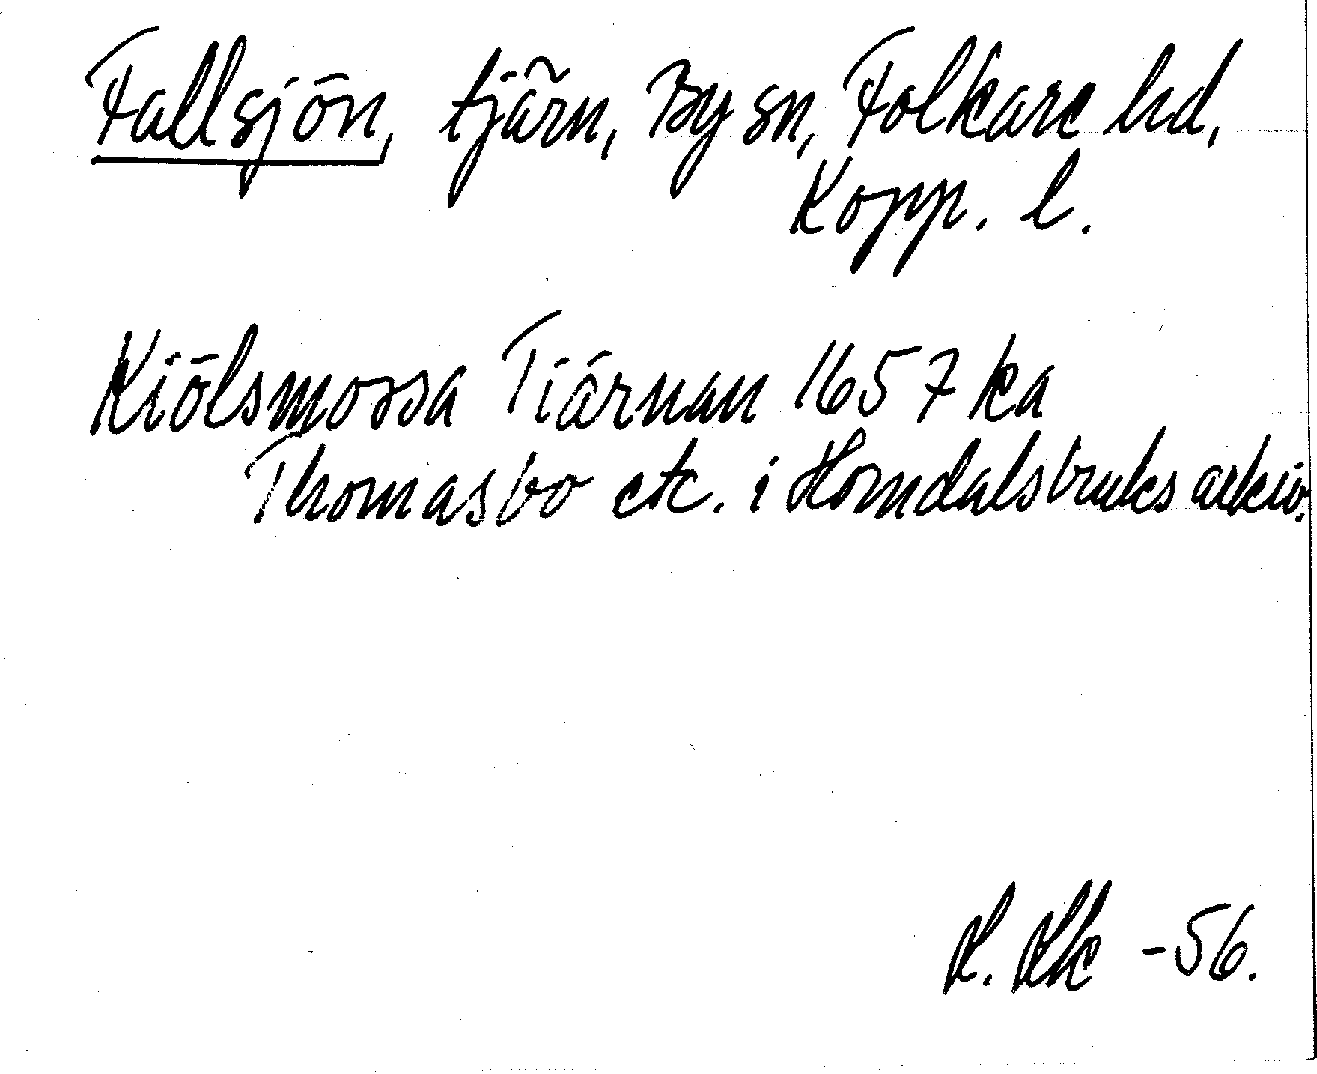 Fallsjön, tjärn, By sn, Folkare hd,
Kopp. l.
Kiölsmossa Tiärnan 1657 ka
Thomasbo etc. i Horndalsbruks arkiv.
-56.